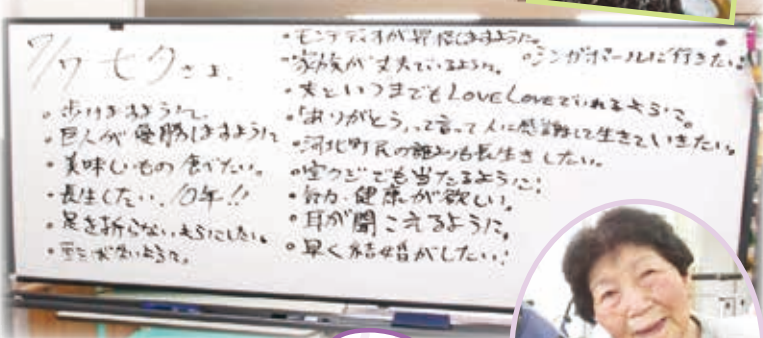 7/7 七夕さま。
・歩けますように。
・巨人が優勝しますように
・美味しいもの食べたい。
・長生したい、10年!!
・足を折らないようにしたい。
・モンテディオが昇格しますように。
・家族が丈夫でいるように。
・シンガポールに行きたい!
・夫といつまでもLOVE LOVEでいれるように。
・「ありがとう」って言って人に感謝して生きていきたい。
・河北町民の誰よりも長生きしたい。
・宝クジでも当たるように!
・健康が欲しい。
・耳が聞こえるように。
・早く結婚がしたい!